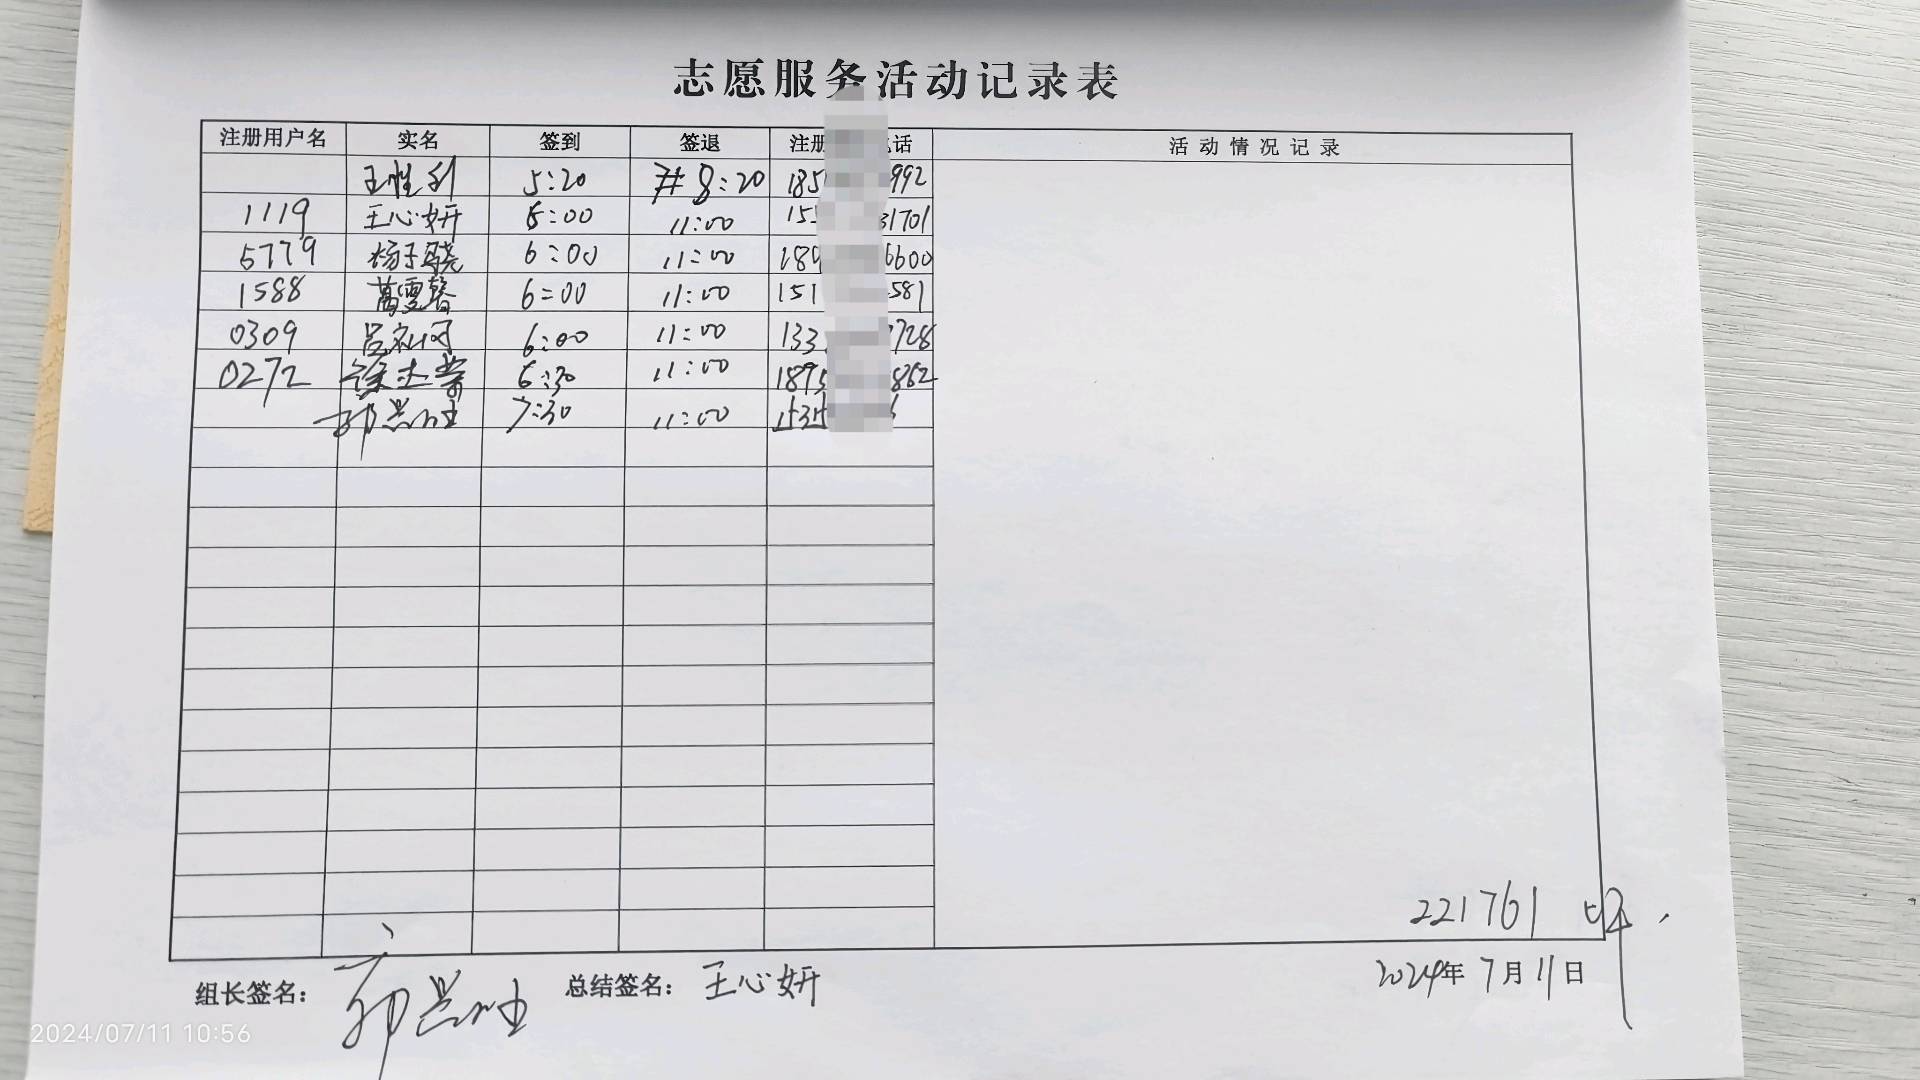 志愿服务活动记录表
注册用户名 实名 签到 签退 注册 话 活动情况记录
5:20 8:20 185 992
1119 王心妍 6:00 11:00 155 31701
5779 杨子骁 6:00 11:00 189 6600
1588 6:00 11:00 151 581
0309 6:00 11:00 133 728
0272 6:30 11:00 1895 862
7:30 11:00
221761
组长签名: 总结签名: 王心妍 2024年7月11日
2024/07/11 10:56